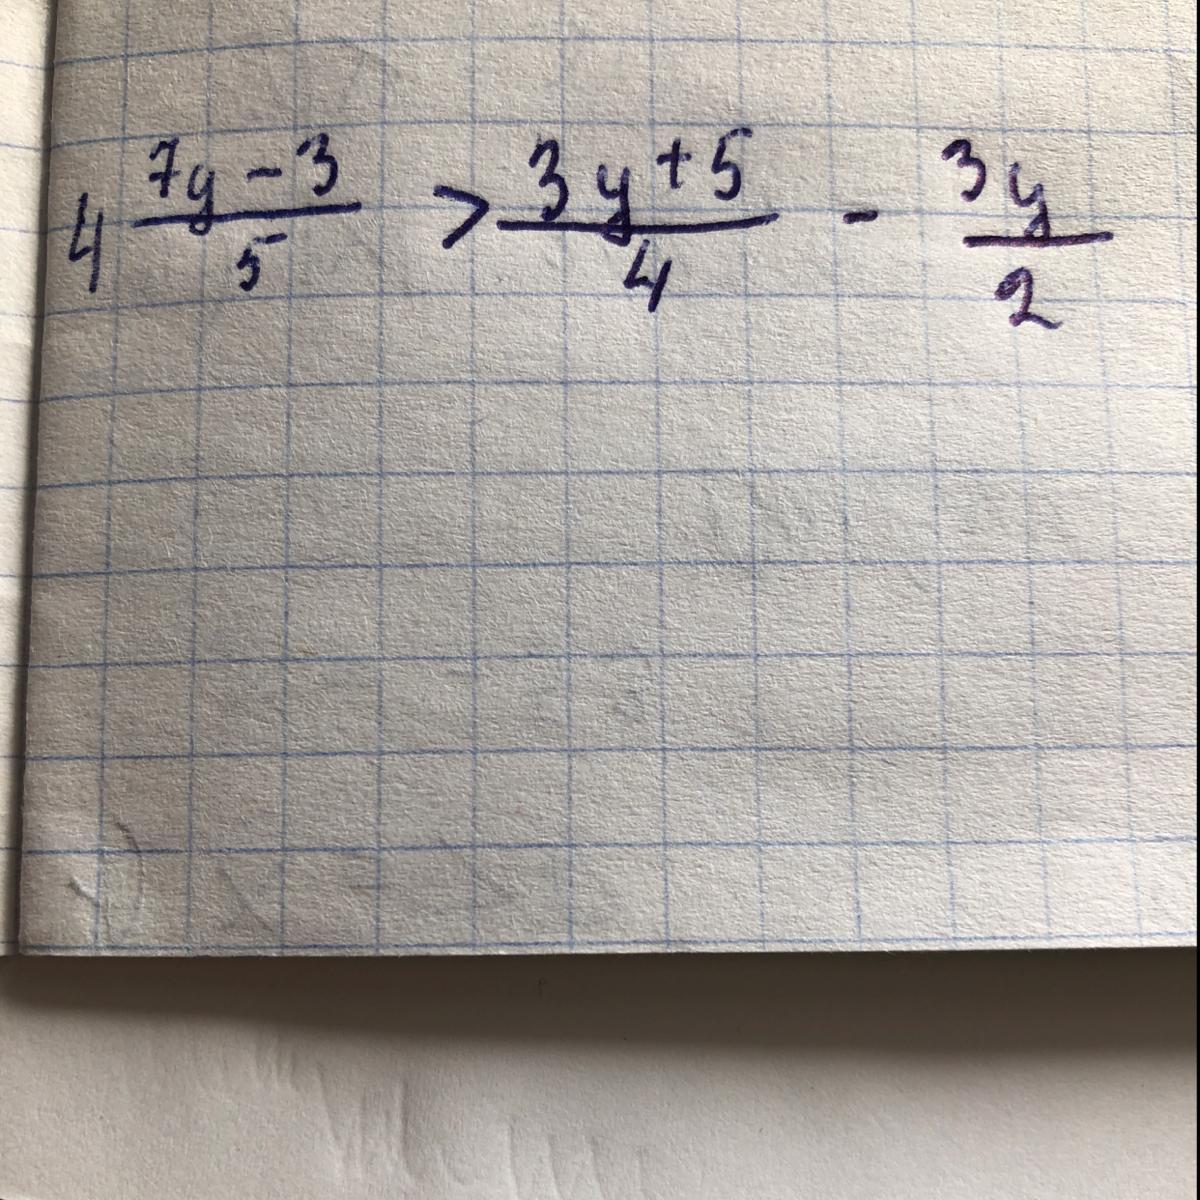 4 \frac{7y-3}{5} > \frac{3y+5}{4} - \frac{3y}{2}